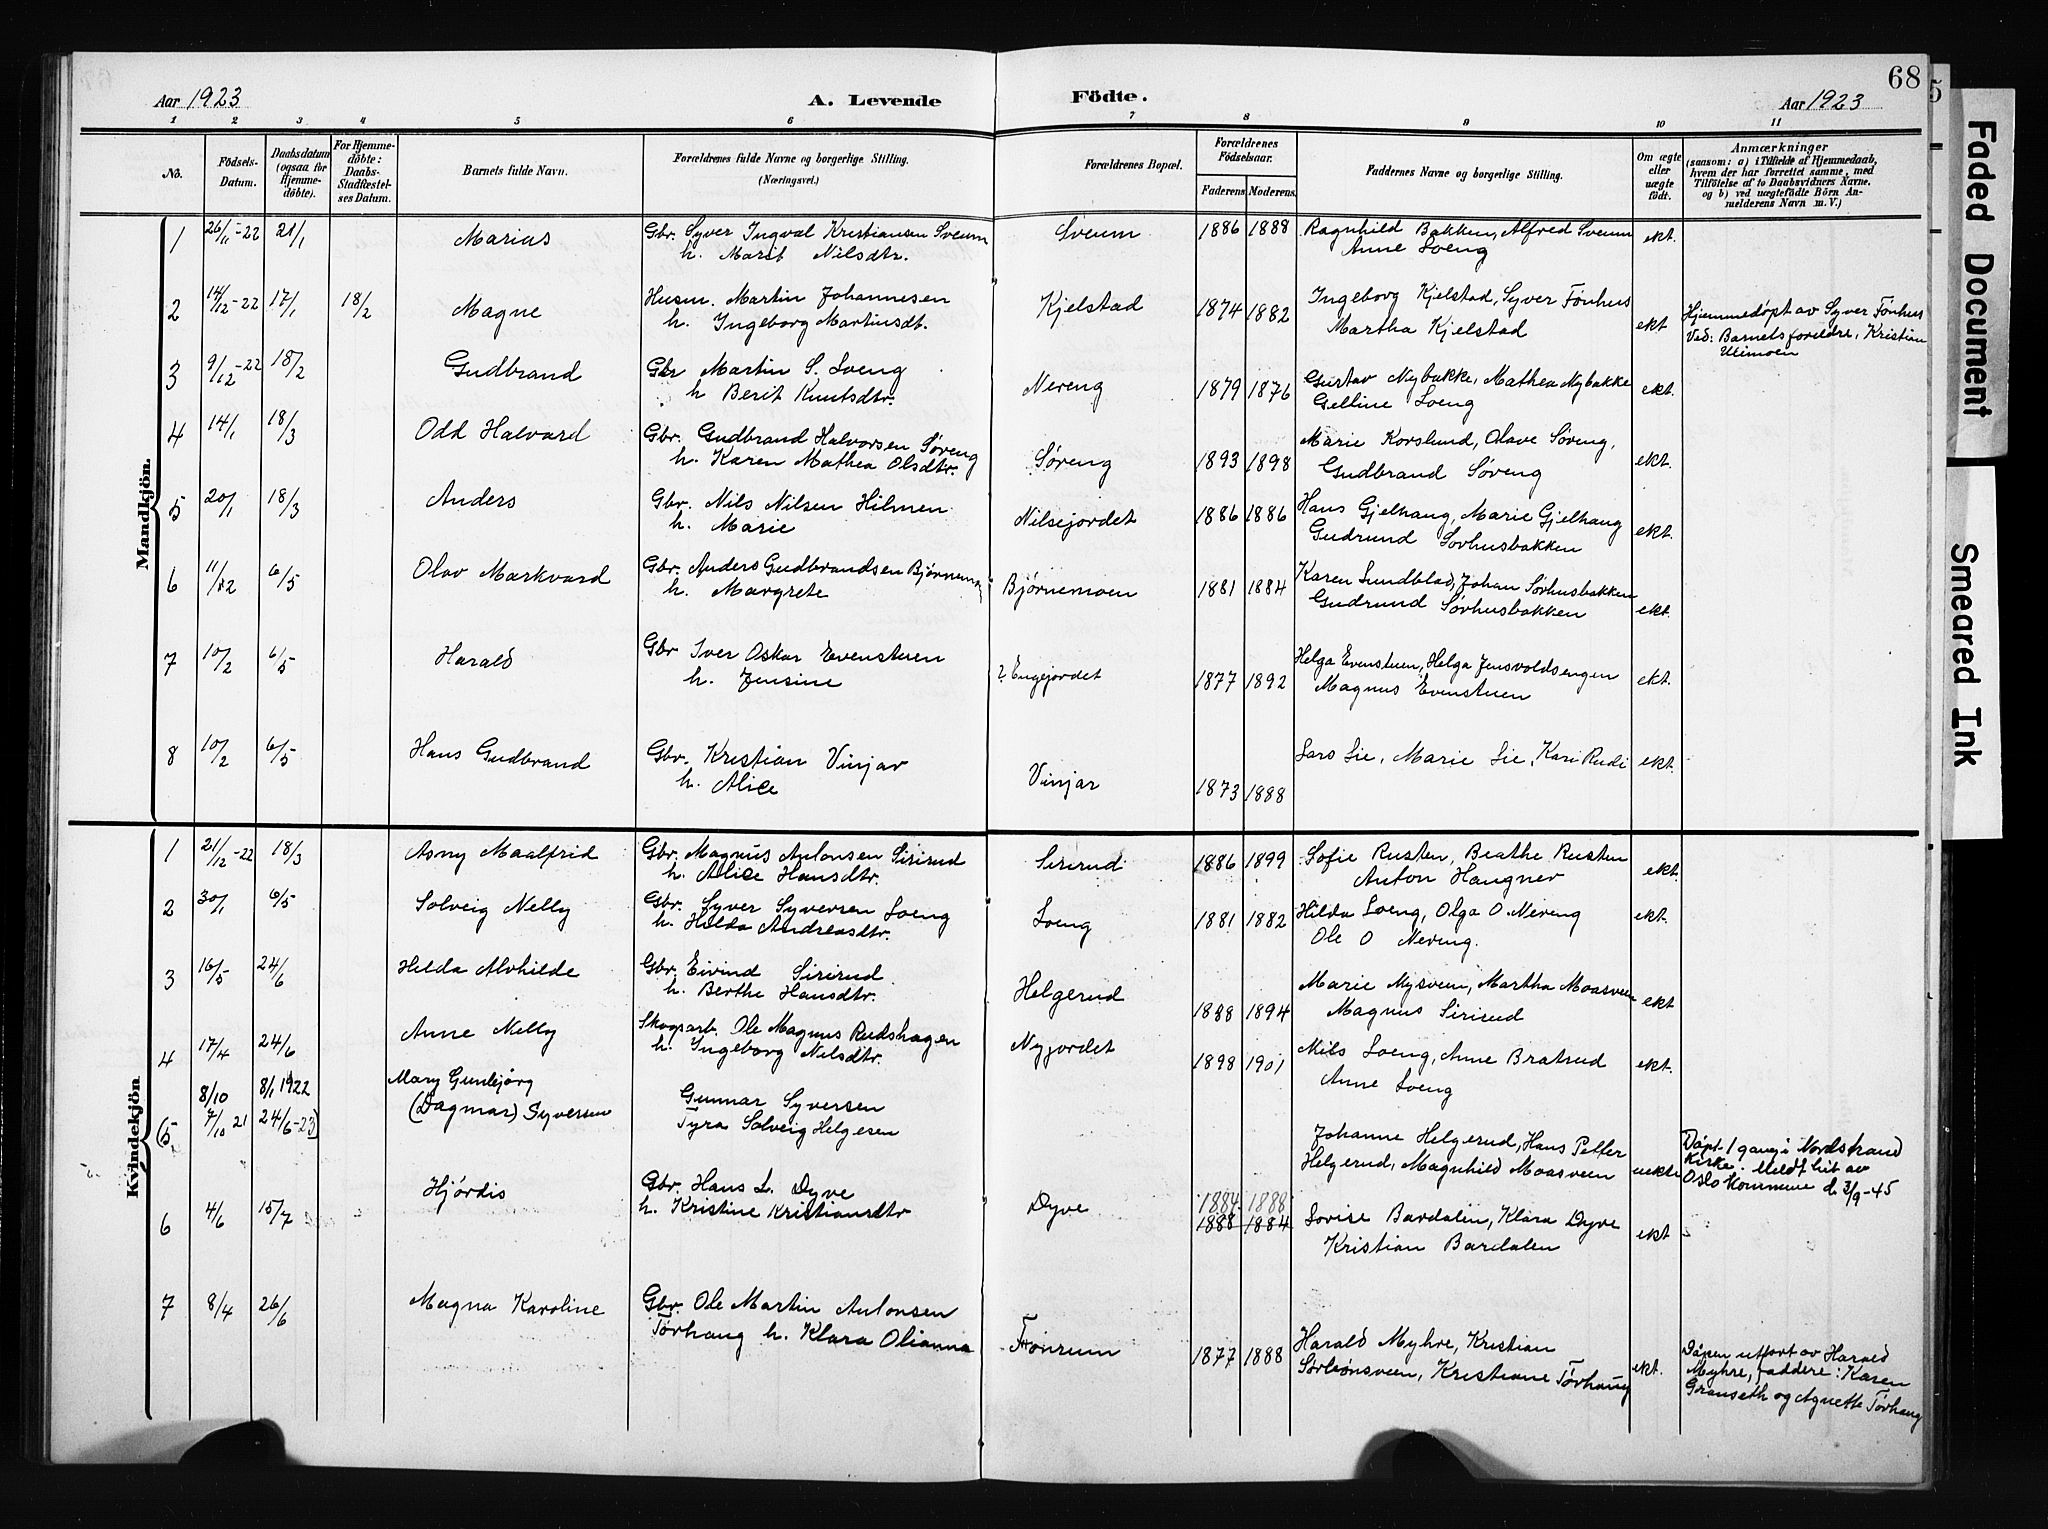 68
5
Aar 1923
A. Levende
Födte.
Aar 1923
1 2 3 4 5 6 7 8 9 10 11
No.
Födsels-Datum.
Daabsdatum (ogsaa for Hjemme-döbte).
For Hjemme-döbte: Daabs-Stadfæstel-ses Datum.
Barnets fulde Navn.
Forældrenes fulde Navne og borgerlige Stilling.
(Næringsvei.)
Forældrenes Bopæl.
Forældrenes Födselsaar.
Faderens. Moderens.
Faddernes Navne og borgerlige Stilling.
Om ægte eller uægte födt.
Anmærkninger
(saasom: a) i Tilfælde af Hjemmedaab,
hvem der har forrettet samme, med
Tilföielse af to Daabsvidners Navne,
og b) ved uægtefödte Börn An-
melderens Navn m. V.)
Mandkjön.
1 26/11-22 21/1 Marius Gbr. Syver Ingval Kristiansen Sveum Sveum 1886 1888 Ragnhild Bakken, Alfred Sveum ekt.
h. Marit Nilsdtr. Anne Loeng
2 14/12-22 17/1 18/2 Magne Husm. Martin Johannesen Kjelstad 1874 1882 Ingeborg Kjelstad, Syver Fönhus ekt Hjemmedøpt av Syver Fönhus
h. Ingeborg Martinsdt. Martha Kjelstad Ved: Barnets foreldre, Kristian
Ulimoen
3 9/12-22 18/2 Gudbrand Gbr Martin S. Loeng Nereng 1879 1876 Gustav Nybakke, Mathea Nybakke ekt.
h Berit Knutsdtr. Gelline Loeng
4 14/1 18/3 Odd Halvard Gbr. Gudbrand Halvorsen Søreng Søreng 1893 1898 Marie Korslund, Olave Søreng, ekt.
h. Karen Mathea Olsdtr. Gudbrand Søreng
5 20/1 18/3 Anders Gbr. Nils Nilsen Hilmen Nilsejordet 1886 1886 Hans Gjelhaug, Marie Gjelhaug ekt.
h. Marie Gudrund Sørhusbakken
6 11/12 6/5 Olav Markvard Gbr. Anders Gudbrandsen Bjørnemo Bjørnemoen 1881 1884 Karen Lundblad, Johan Sørhusbakken ekt.
h. Margrete Gudrund Sørhusbakken
7 10/2 6/5 Harald Gbr Iver Oskar Evenstuen ? Engejordet 1877 1892 Helga Evenstuen, Helga Jensvoldsengen ekt.
h. Jensine Magnus Evenstuen
8 10/2 6/5 Hans Gudbrand Gbr. Kristian Vinjar Vinjar 1873 1888 Lars Lie, Marie Lie, Kari Rudi ekt.
h. Alice
Kvindekjön
1 21/12-22 18/3 Asny Maalfrid Gbr. Magnus Antonsen Sirirud Sirirud 1886 1899 Sofie Rusten, Beathe Rusten ekt.
h. Alice Hansdtr. Anton Haugner
2 30/1 6/5 Solveig Nelly Gbr. Syver Syversen Loeng Loeng 1881 1882 Hilda Loeng, Olga O. Nereng ekt.
h. Hilda Andreasdtr. Ole O Nereng.
3 16/5 24/6 Helda Alvhilde Gbr. Eivind Sirirud Helgerud 1888 1894 Marie Nysveen, Martha Moasveen ekt
h. Berthe Hansdtr. Magnus Sirirud
4 17/4 24/6 Anne Nelly Skogsarb. Ole Magnus Rudshagen Nyjordet 1898 1901 Nils Loeng, Anne Bratrud ekt.
h. Ingeborg Nilsdtr. Anne Loeng
8/10 8/1 1922 Mary Gunbjørg
(5. 7/10 21 24/6-23) (Dagmar) Syversen Gunnar Syversen
Tyra Solveig Helgesen Johanne Helgerud, Hans Petter Døpt 1 gang i Nordstrand
Helgerud, Magnhild Moasveen uekte Kirke. Meldt hit av
Oslo Kommune d. 3/9-45
6 4/6 15/7 Hjørdis Gbr. Hans L. Dyve Dyve 1884 1888
h. Kristine Kristiansdtr 1888 1884 Lovise Bardalen, Klara Dyve ekt
Kristian Bardalen
7 8/4 26/6 Magna Karoline Gbr. Ole Martin Antonsen
Tørhaug h. Klara Olianna Frönrum 1877 1888 Harald Myhre, Kristian ekt. Dåpen utført av Harald
Sørlrønsveen, Kristiane Tørhaug Myhre, faddere: Karen
Granseth og Agnette Tørhaug
Faded Document
Smeared Ink